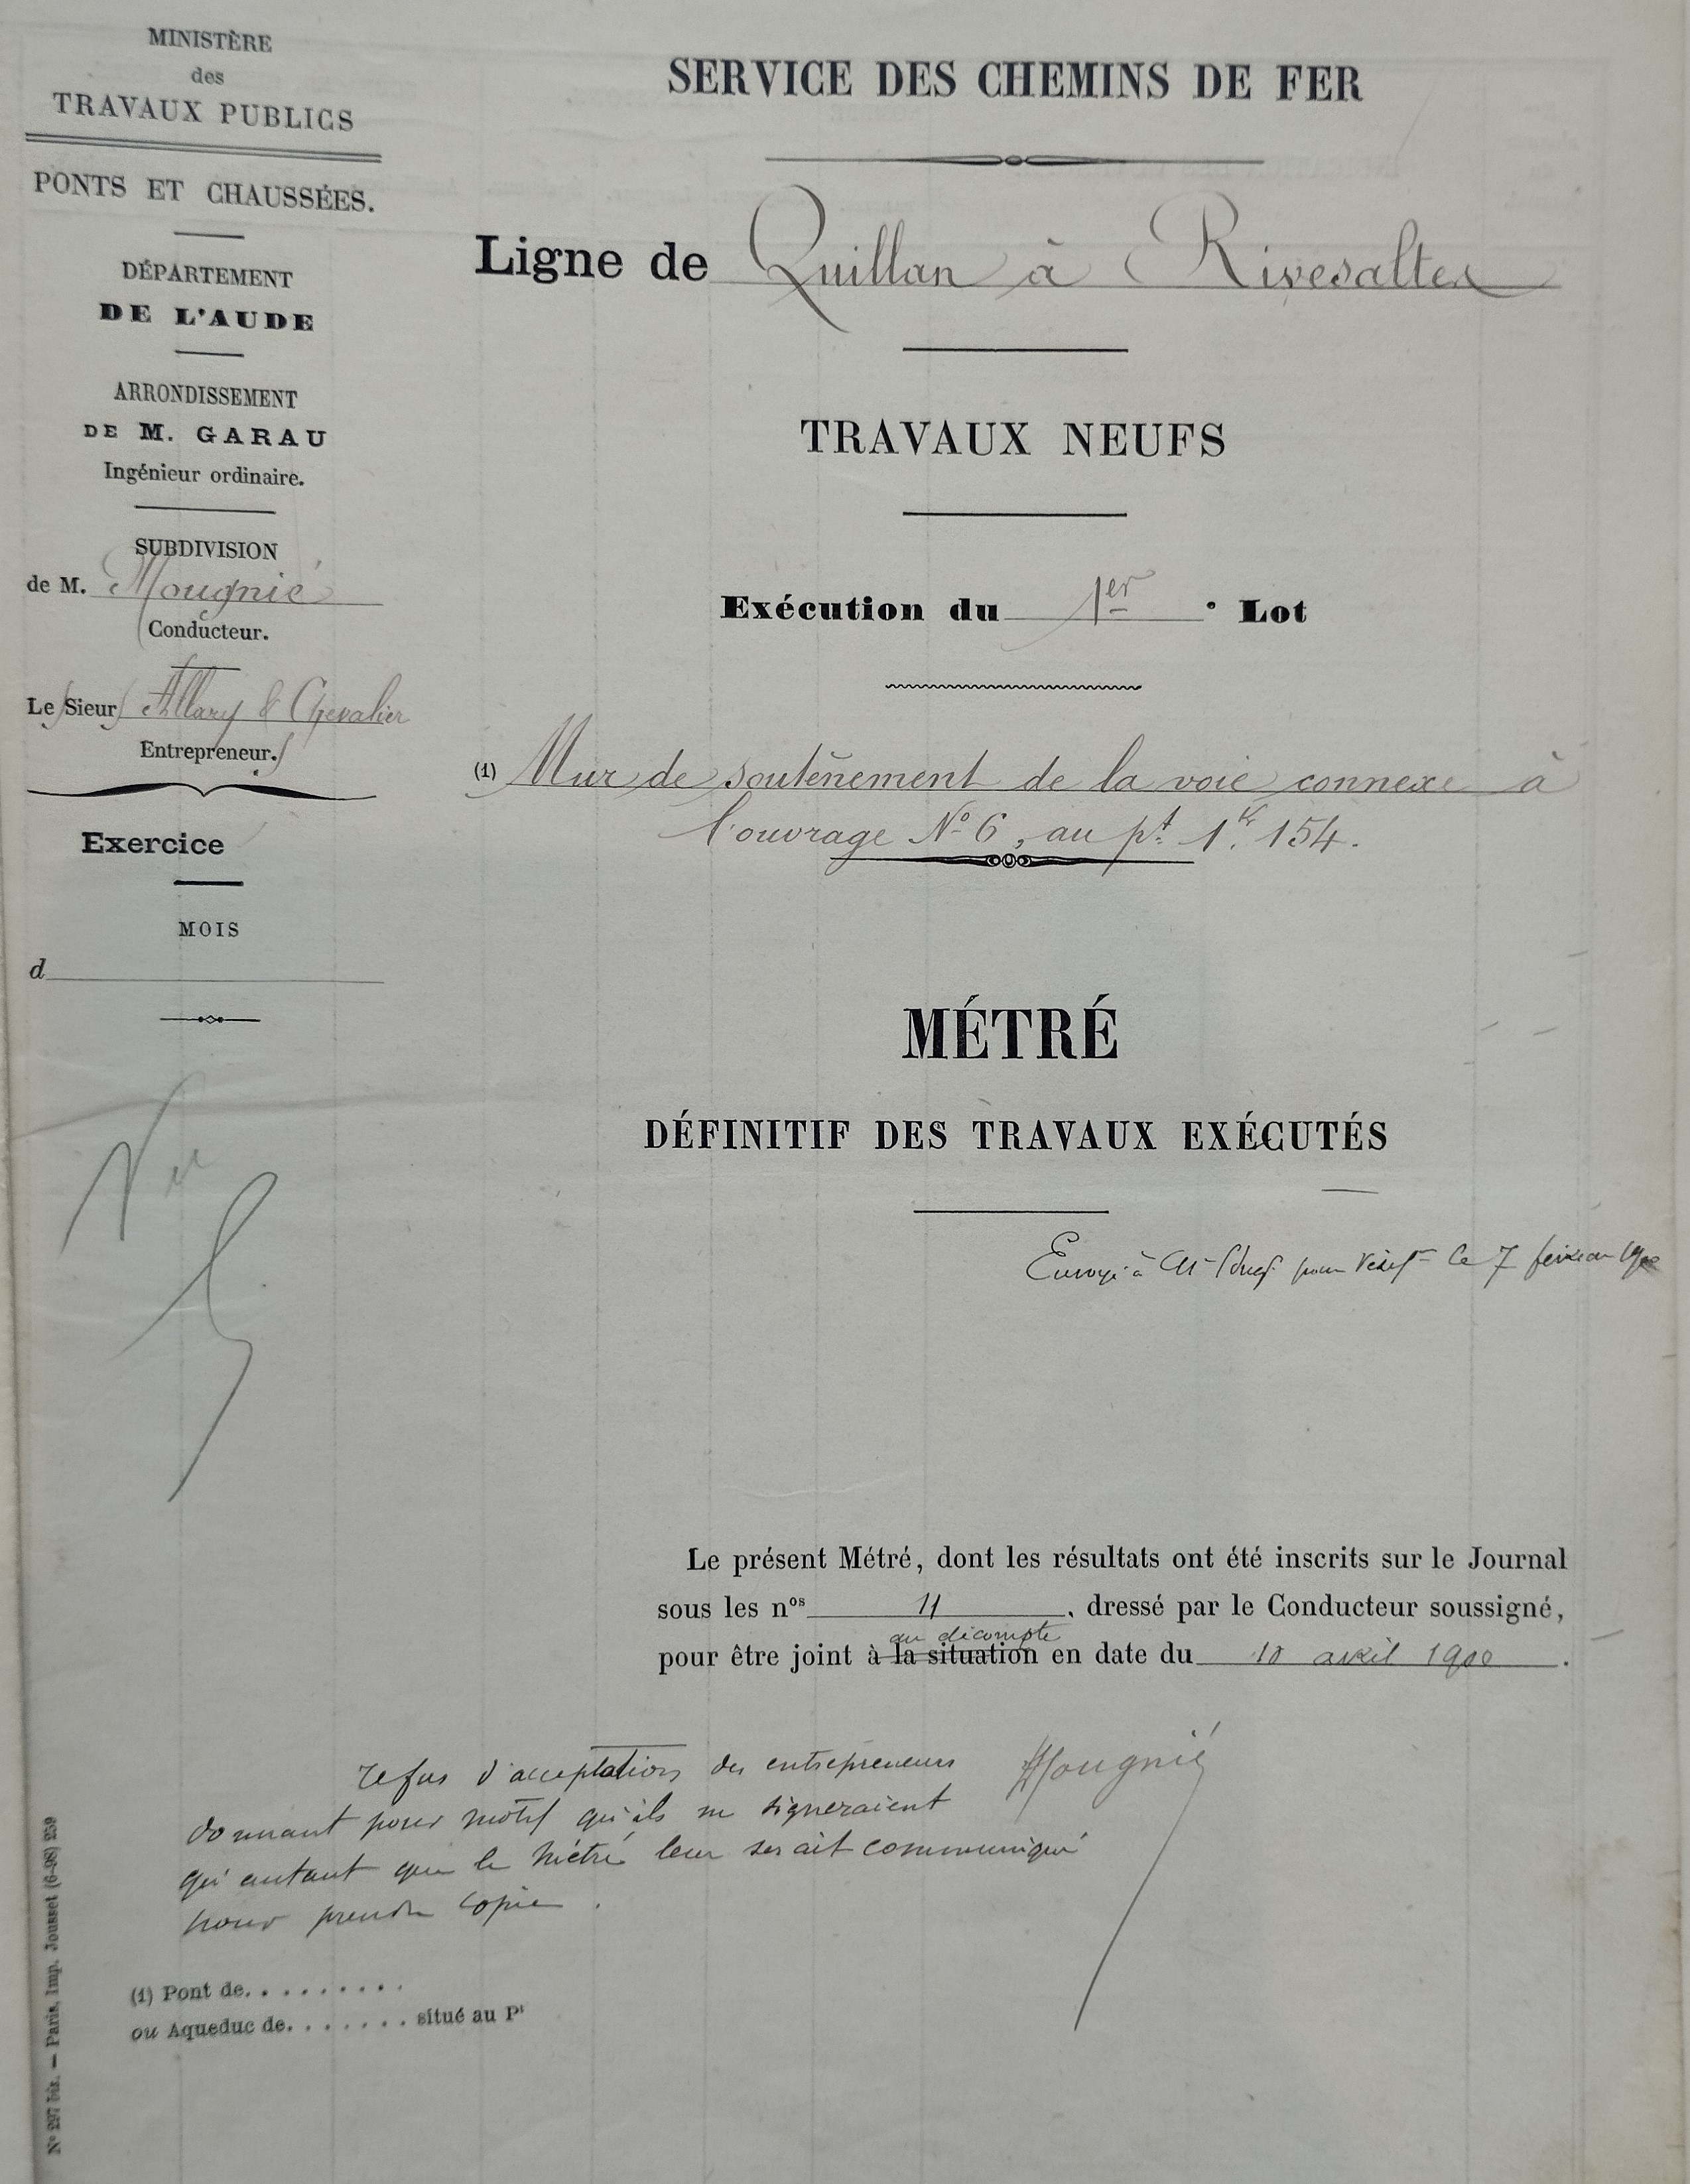 MINISTÈRE
des
TRAVAUX PUBLICS
PONTS ET CHAUSSÉES.
DÉPARTEMENT
DE L'AUDE
ARRONDISSEMENT
DE M. GARAU
Ingénieur ordinaire.
SUBDIVISION
de M. Mougnié
Conducteur.
Le Sieur Allary & Chevalier
Entrepreneur.
Exercice
MOIS
d
Vu
SERVICE DES CHEMINS DE FER
Ligne de Quillan à Rivesaltes
TRAVAUX NEUFS
Exécution du 1er Lot
(1) Mur de soutènement de la voie connexe à
l'ouvrage No 6, au pt 1k.154.
MÉTRÉ
DÉFINITIF DES TRAVAUX EXÉCUTÉS
Envoyé à pour le 7 1900
Le présent Métré, dont les résultats ont été inscrits sur le Journal
sous les nos 11, dressé par le Conducteur soussigné,
au décompte
pour être joint à la situation en date du 10 avril 1900.
refus d'acceptation des entrepreneurs
Mougnié
donnant pour motif qu'ils ne signeraient
qu'autant que le Métré leur serait communiqué
pour prendre copie.
(1) Pont de. . . . . . . . .
ou Aqueduc de. . . . . . . situé au Pt
No 297 bis. — Paris, Imp. Jousset (6-98) 259